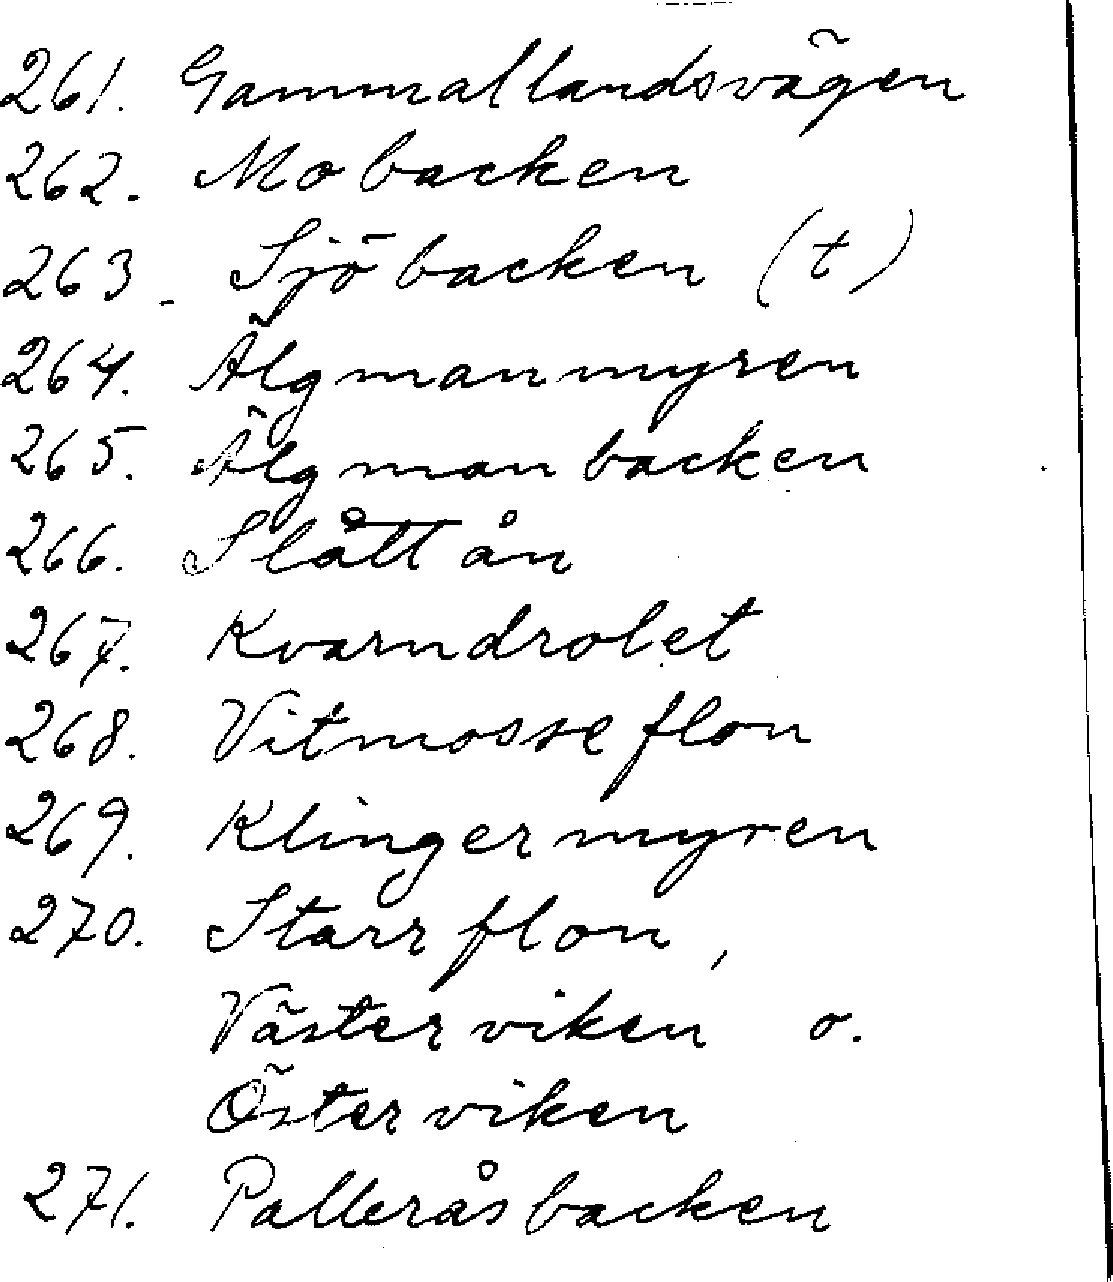 261. Gammallandsvägen
262. Mobacken
263. Sjöbacken (t)
264. Älgmanmyren
265. Älgmanbacken
266. Slåttån
267. Kvarndrolet
268. Vitmosseflon
269. Klingermyren
270. Starrflon,
Västerviken o.
Österviken
271. Palleråsbacken